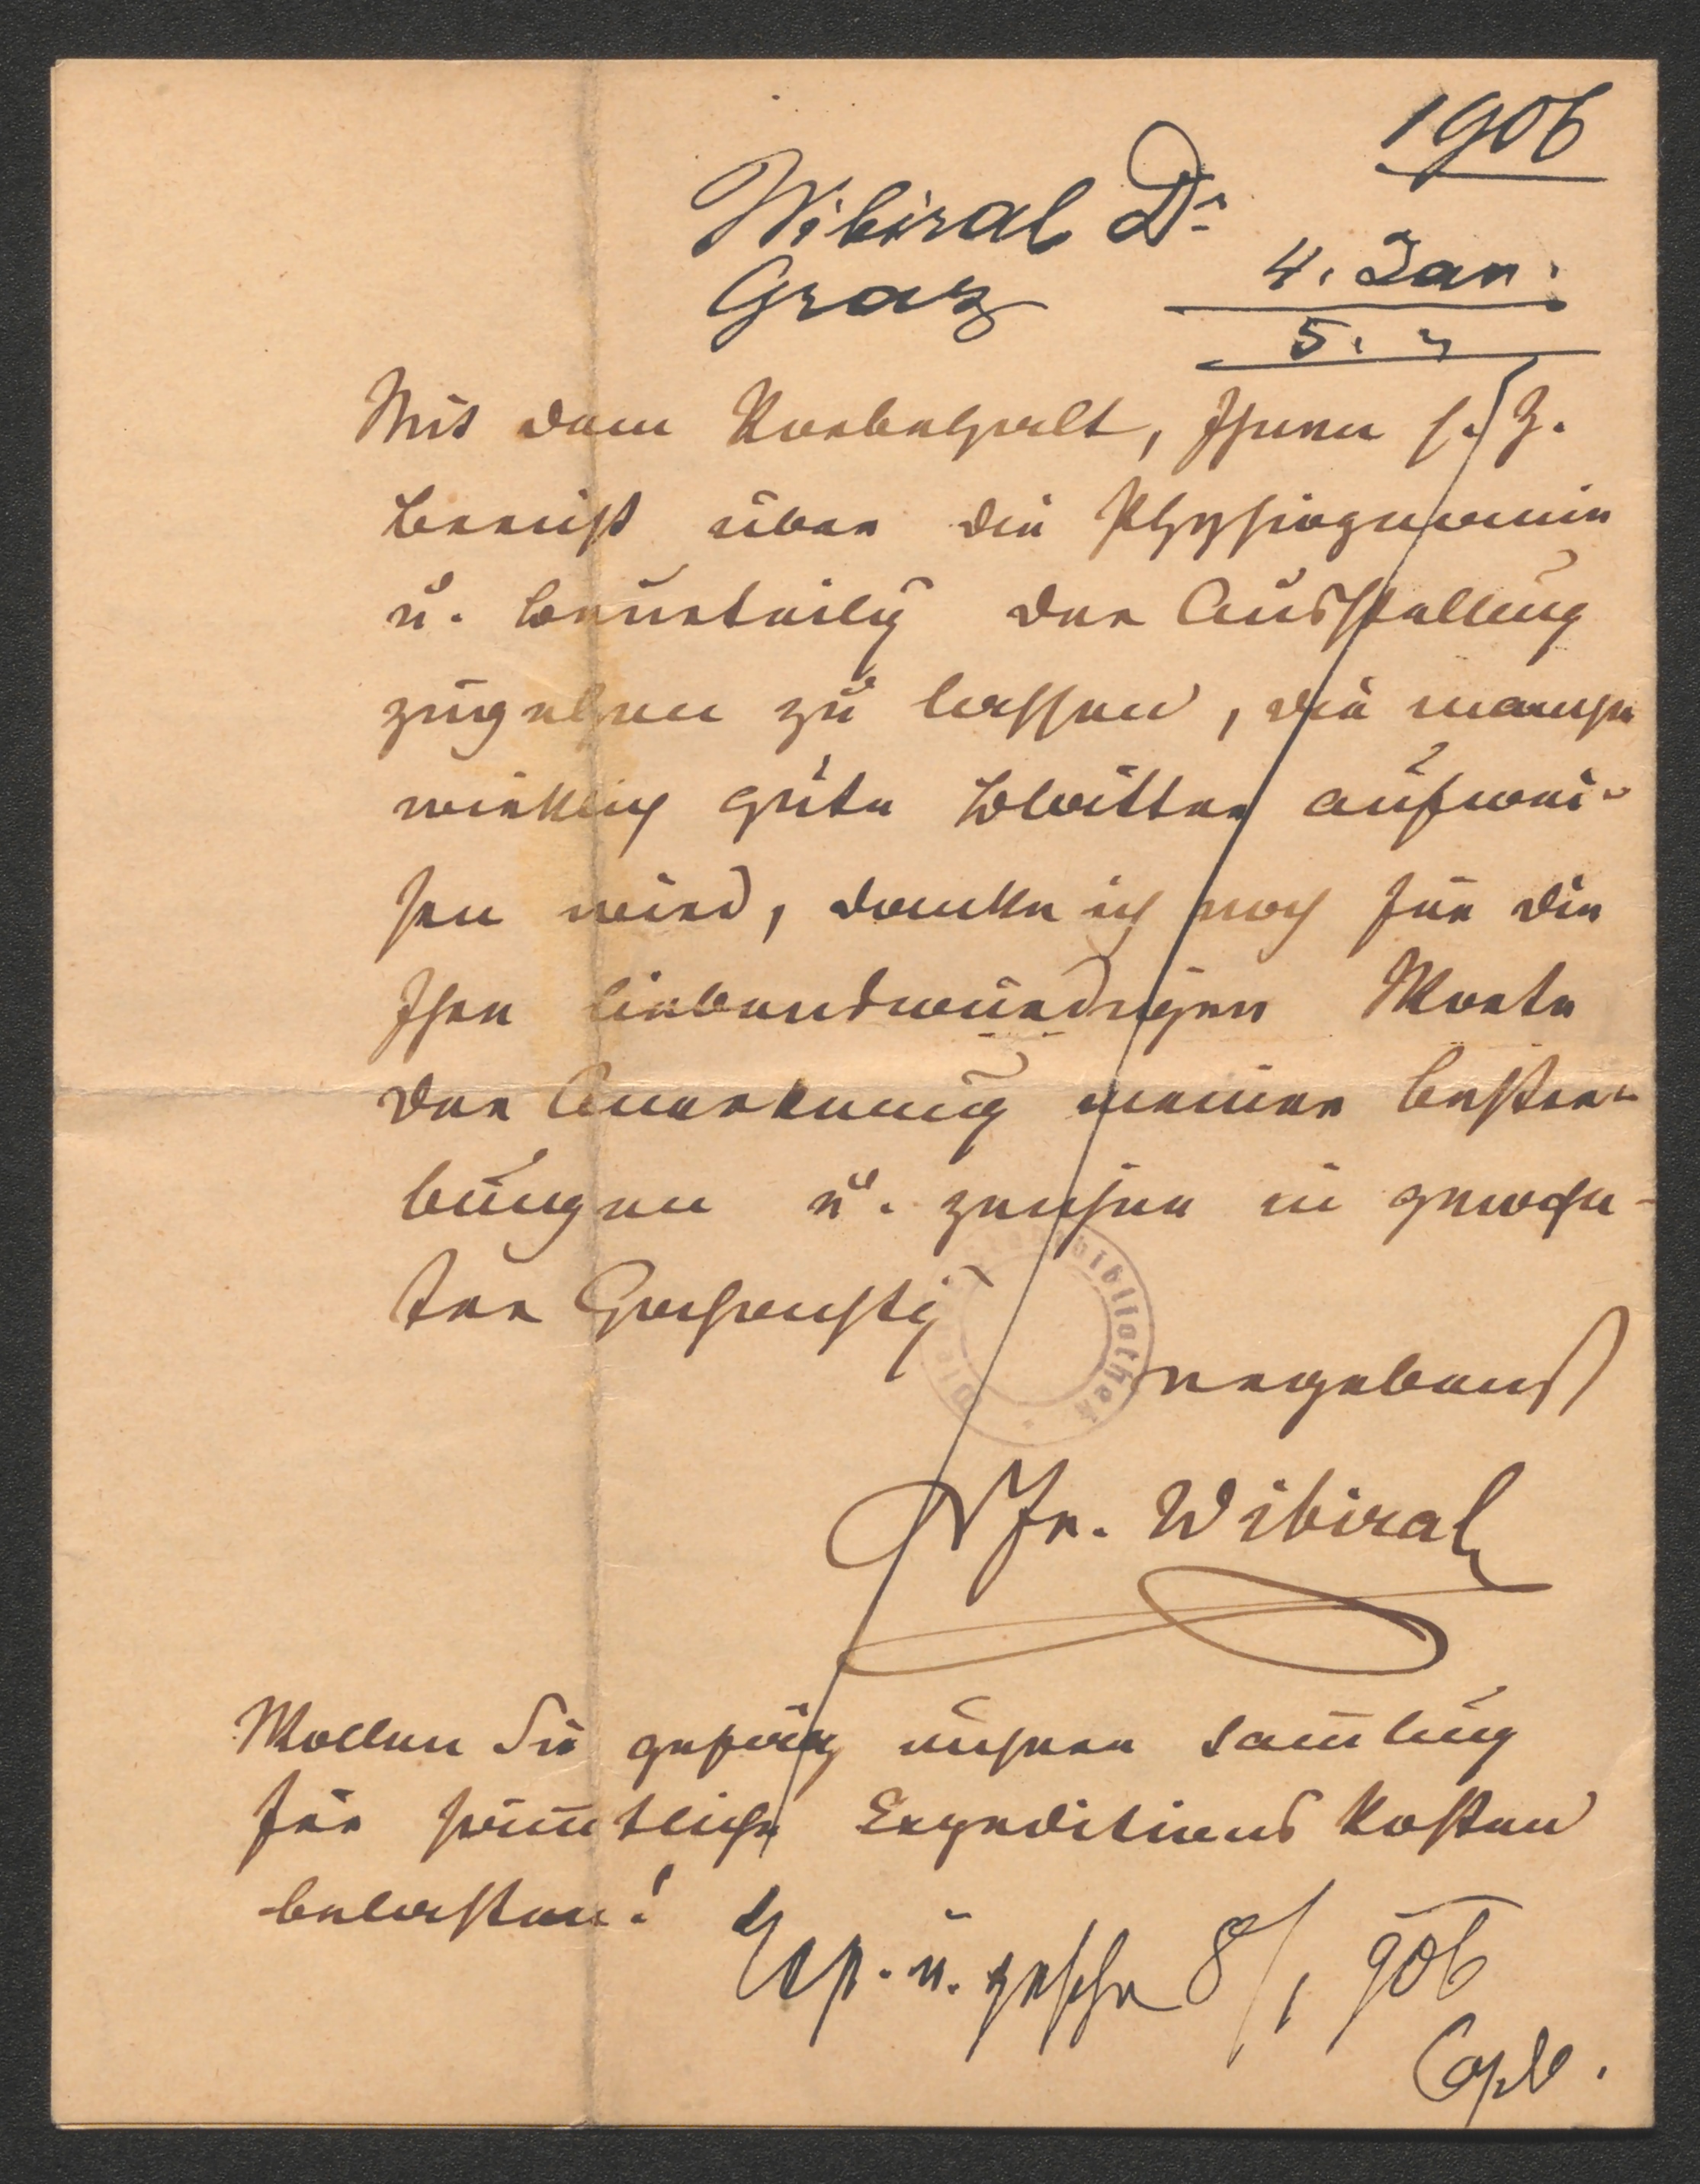 1906
Wibiral Dr
Graz
4. Jan.
5. "
Mit dem Vorbehalt, Ihnen s. Z.
Bericht über die Physiognomie
u. Beurteilg der Ausstellung
zugehen zu lassen, die manche
wirklich gute Blätter aufwei-
sen wird, danke ich noch für die
Ihre liebenswürdigen Worte
der Anerkenung meiner Bestre-
bungen u. zeichne in gewohn-
ter Hochachtg
ergebenst
Dr Fr. Wibiral
Wollen Sie gefälig unsere Samlung
für sämtliche Expeditions Kosten
belasten!
Exp. u. geschr 8/1 906